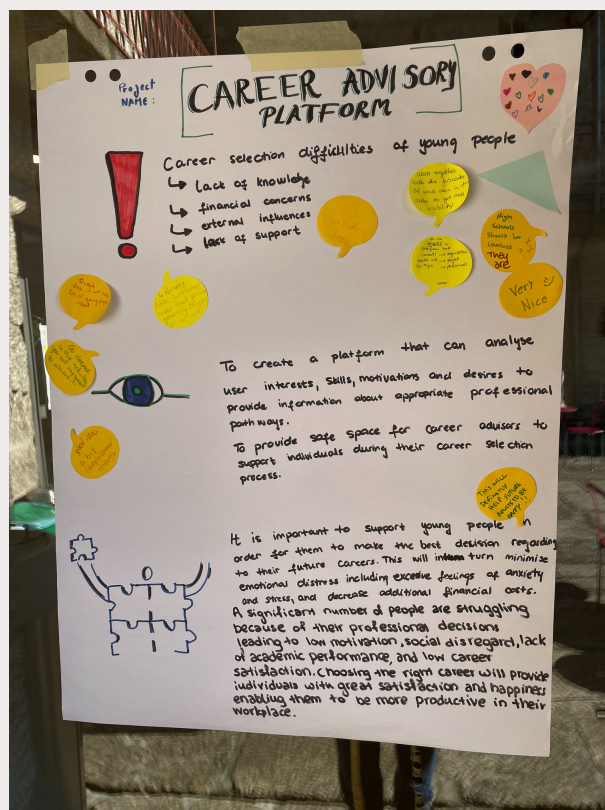 Project
NAME :
CAREER ADVISORY
PLATFORM
Career selection difficulties of young people
↳ lack of knowledge
↳ financial concerns
↳ external influences
↳ lack of support
Work together
High
Schools
Should be
They
are
Very
Nice
To create a platform that can analyse
user interests, skills, motivations and desires to
provide information about appropriate professional
pathways.
To provide safe space for career advisors to
support individuals during their career selection
process.
good idea
a bit
THIS WILL
DEFINETLY
HELP FUTURE
ADULTS TO BE
HAPPY!!
It is important to support young people in
order for them to make the best desision regarding
to their future careers. This will turn minimise
emotional distress including excesive feelings of anxiety
and stress, and decrease additional financial costs.
A significant number of people are struggling
because of their professional decisions
leading to low motivation, social disregard, lack
of academic performance, and low career
satisfaction. Choosing the right career will provide
individuals with great satisfaction and happiness
enabling them to be more productive in their
workplace.